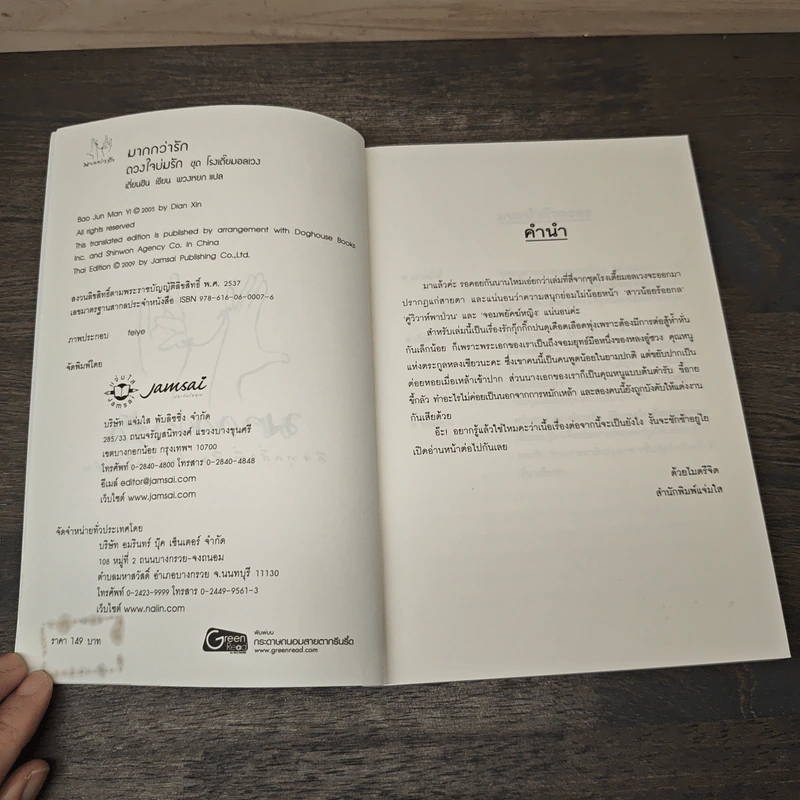 มากกว่ารัก
มากกว่ารัก
ดวงใจบ่มรัก ชุด โรงเตี๊ยมอลเวง
เตี่ยนซิน เขียน พวงหยก แปล
Bao Jun Man Yi © 2005 by Dian Xin
All rights reserved
This translated edition is published by arrangement with Doghouse Books
Inc. and Shinwon Agency Co. in China
Thai Edition © 2009 by Jamsai Publishing Co.,Ltd.
สงวนลิขสิทธิ์ตามพระราชบัญญัติลิขสิทธิ์ พ.ศ. 2537
เลขมาตรฐานสากลประจำหนังสือ ISBN 978-616-06-0007-6
ภาพประกอบ feiye
จัดพิมพ์โดย
jamsai
บริษัท แจ่มใส พับลิชชิ่ง จำกัด
285/33 ถนนจรัญสนิทวงศ์ แขวงบางขุนศรี
เขตบางกอกน้อย กรุงเทพฯ 10700
โทรศัพท์ 0-2840-4800 โทรสาร 0-2840-4848
อีเมล์ editor@jamsai.com
เว็บไซต์ www.jamsai.com
จัดจำหน่ายทั่วประเทศโดย
บริษัท อมรินทร์ บุ๊ค เซ็นเตอร์ จำกัด
108 หมู่ที่ 2 ถนนบางกรวย-จงถนอม
ตำบลมหาสวัสดิ์ อำเภอบางกรวย จ.นนทบุรี 11130
โทรศัพท์ 0-2423-9999 โทรสาร 0-2449-9561-3
เว็บไซต์ www.naiin.com
ราคา 149 บาท
Green Read
พิมพ์บน
กระดาษถนอมสายตากรีนรี้ด
www.greenread.com
คำนำ
มาแล้วค่ะ รอคอยกันนานไหมเอ่ยกว่าเล่มที่สี่จากชุดโรงเตี๊ยมอลเวงจะออกมา
ปรากฏแก่สายตา และแน่นอนว่าความสนุกย่อมไม่น้อยหน้า 'สาวน้อยร้อยกล'
'คู่วิวาห์พาป่วน' และ 'จอมพยัคฆ์หญิง' แน่นอนค่ะ
สำหรับเล่มนี้เป็นเรื่องรักกุ๊กกิ๊กปนดุเดือดเลือดพุ่งเพราะต้องมีการต่อสู้ห้ำหั่น
กันเล็กน้อย ก็เพราะพระเอกของเราเป็นถึงจอมยุทธ์มือหนึ่งของหลงอู่ซวง คุณหนู
แห่งตระกูลหลงเชียวนะคะ ซึ่งเขาคนนี้เป็นคนพูดน้อยในยามปกติ แต่ขยับปากเป็น
ต่อยหอยเมื่อเหล้าเข้าปาก ส่วนนางเอกของเราก็เป็นคุณหนูแบบต้นตำรับ ขี้อาย
ขี้กลัว ทำอะไรไม่ค่อยเป็นนอกจากการหมักเหล้า และสองคนนี้ยังถูกบังคับให้แต่งงาน
กันเสียด้วย
อ๊ะ! อยากรู้แล้วใช่ไหมคะว่าเนื้อเรื่องต่อจากนี้จะเป็นยังไง งั้นจะชักช้าอยู่ไย
เปิดอ่านหน้าต่อไปกันเลย
ด้วยไมตรีจิต
สำนักพิมพ์แจ่มใส